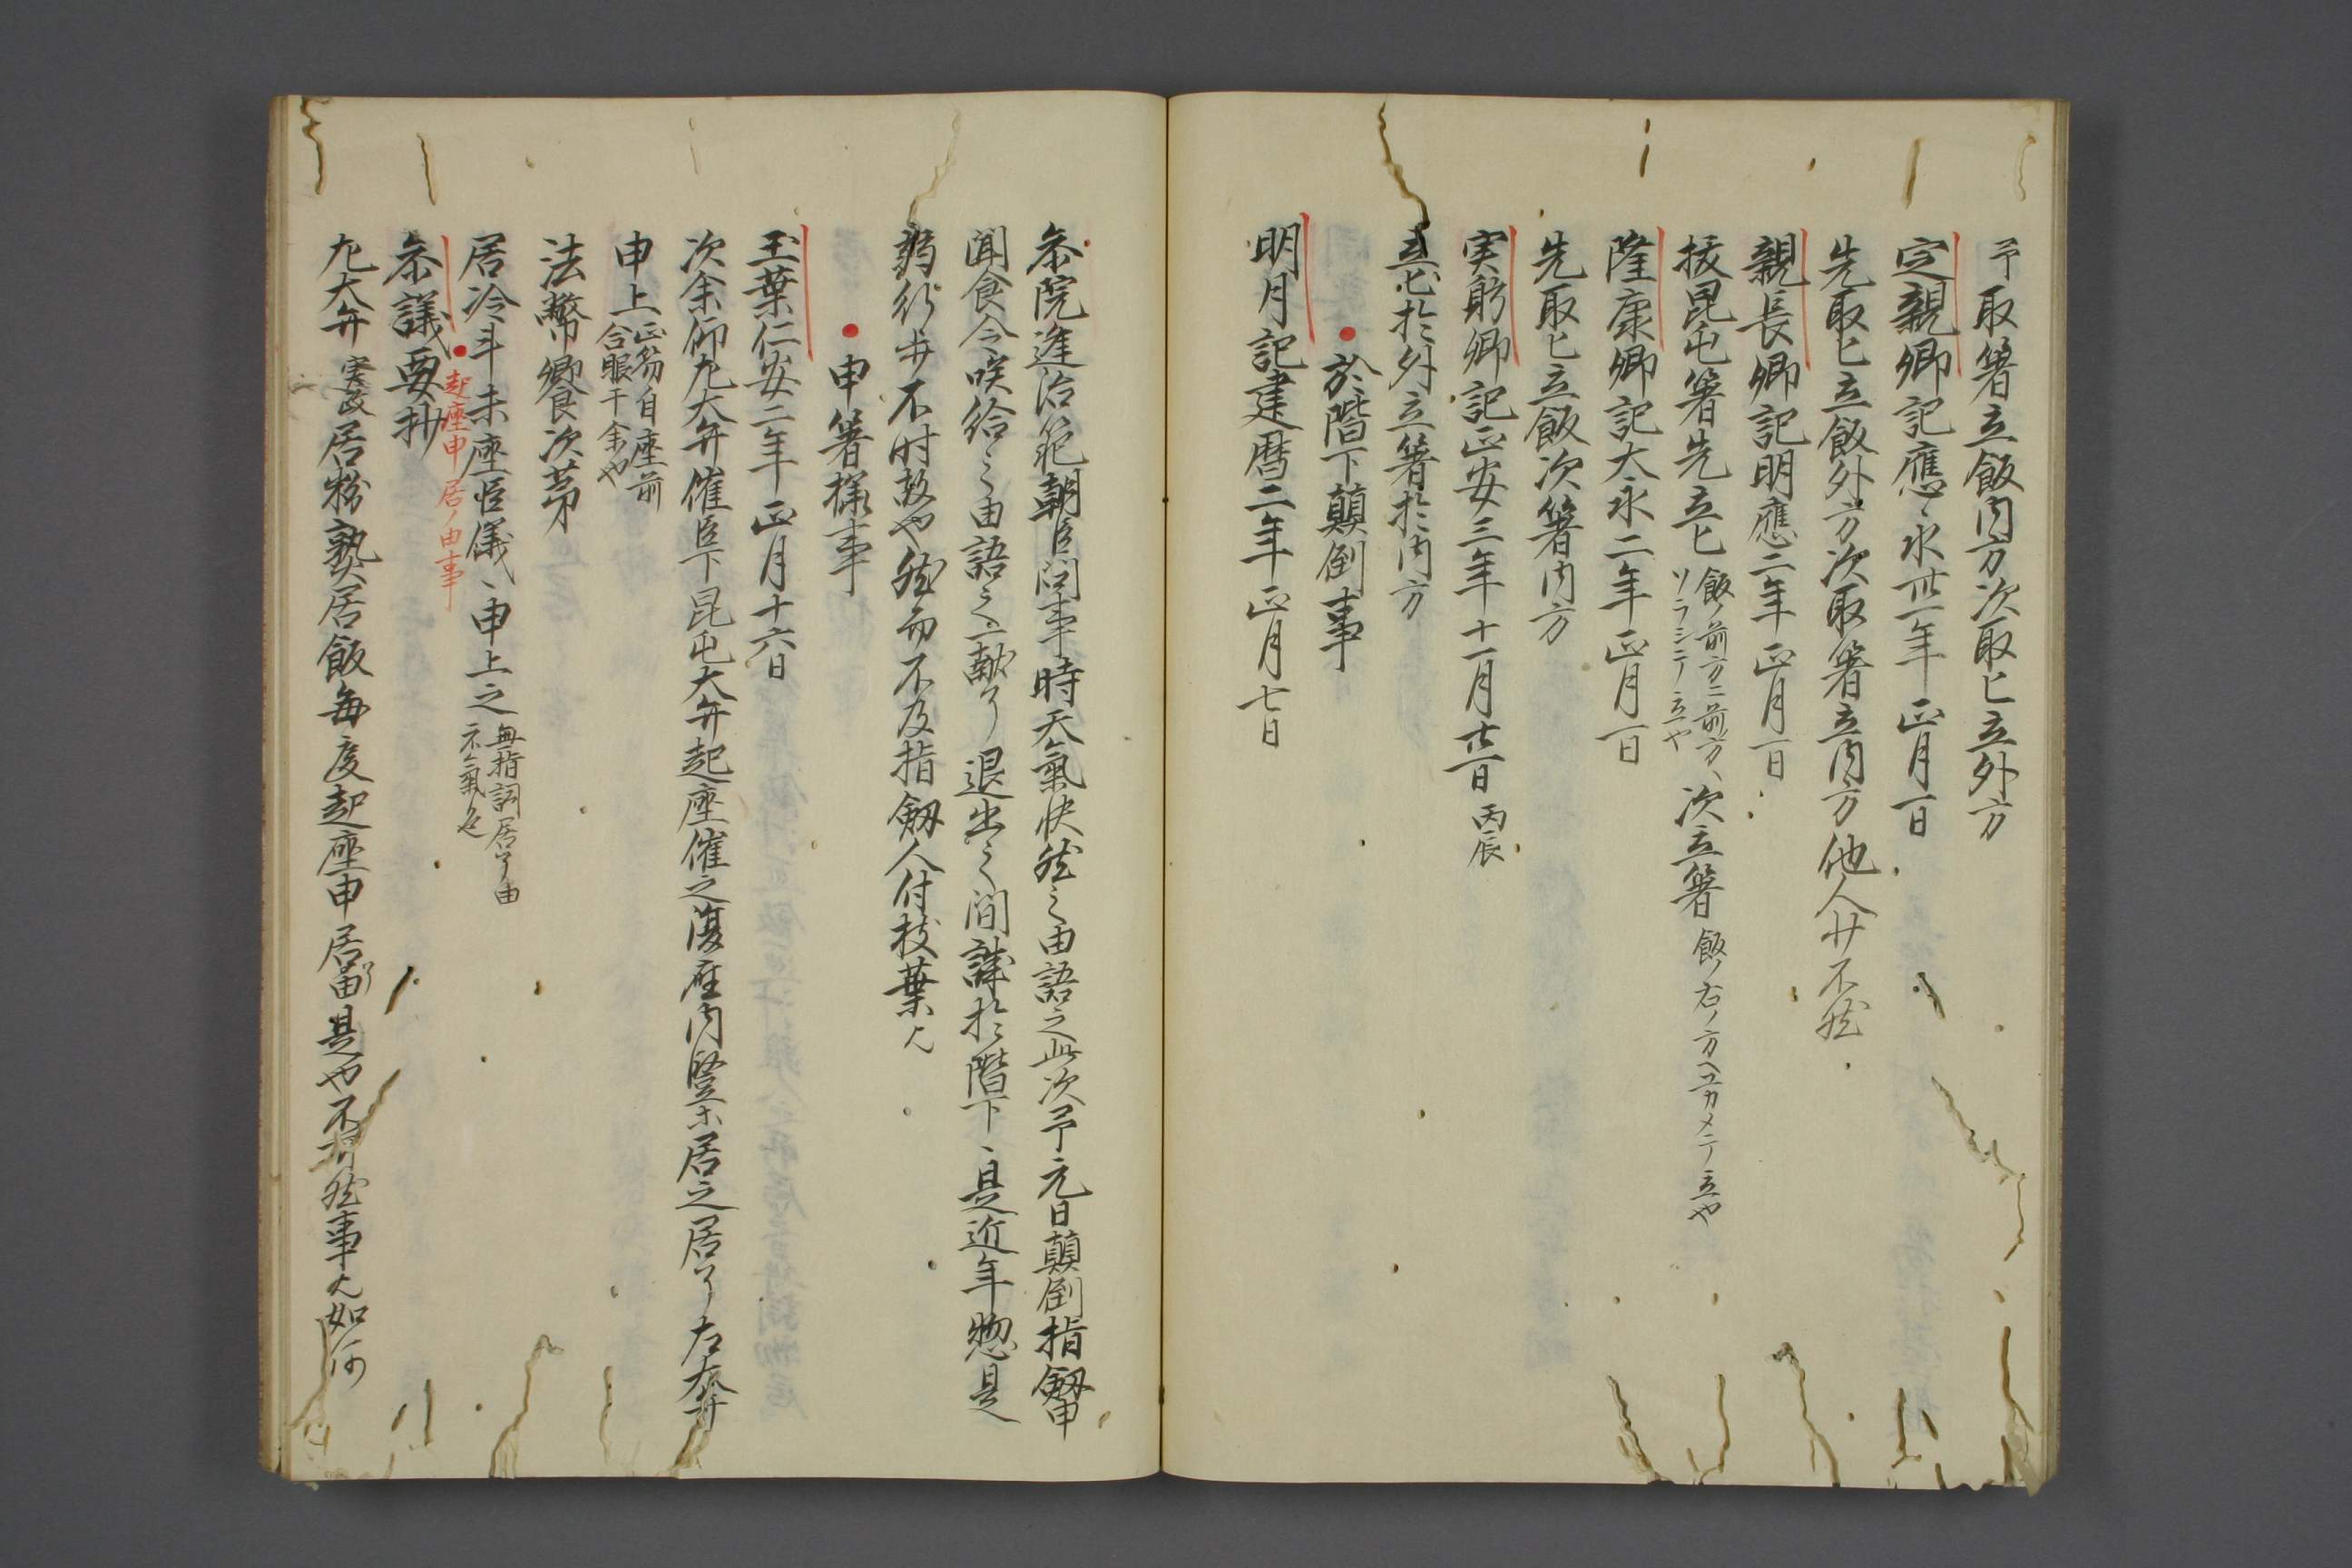 予取箸立飯内方次取匕立外方
定親卿記應永卅一年正月一日
先取匕立飯外方次取箸立内方他人皆不然
親長卿記明應二年正月一日
抜昆屯箸先立匕飯ノ前方ニ前方ヘソラシテ立也次立箸飯ノ右ノ方ヘユカメテ立也
隆康卿記大永二年正月一日
先取匕立飯次箸内方
実躬卿記正安三年十一月廿一日丙辰
立匕於外立箸於内方
於階下顛倒事
明月記建暦二年正月七日
参院逢治範朝臣問事時天氣快然之由語之此次予元日顛倒指劔申
聞食令咲給之由語之一献了退出之間謀於階下、是近年惣是
弱行歩不时故也然而不及指劔人付枝葉欤
申箸様事
玉葉仁安二年正月十六日
次余仰左大弁催臣下昆屯大弁起座催之復座内豎等居之居了左大弁
申上正笏自座前合眼于余也
法幣卿食次第
居冷汁未座臣儀、申上之無指詞居了由示氣色
起座申居ノ由事
参議要抄
左大弁居粉熟居飯毎度起座申居了由是也不然事欤如何